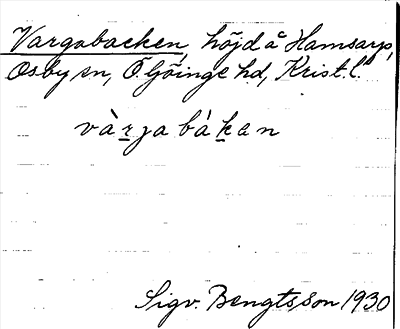 Vargabacken, höjd å Hamsarp,
Osby sn, Ö. Göinge hd, Krist. l.
vàrjabákan
Sigv. Bengtsson 1930